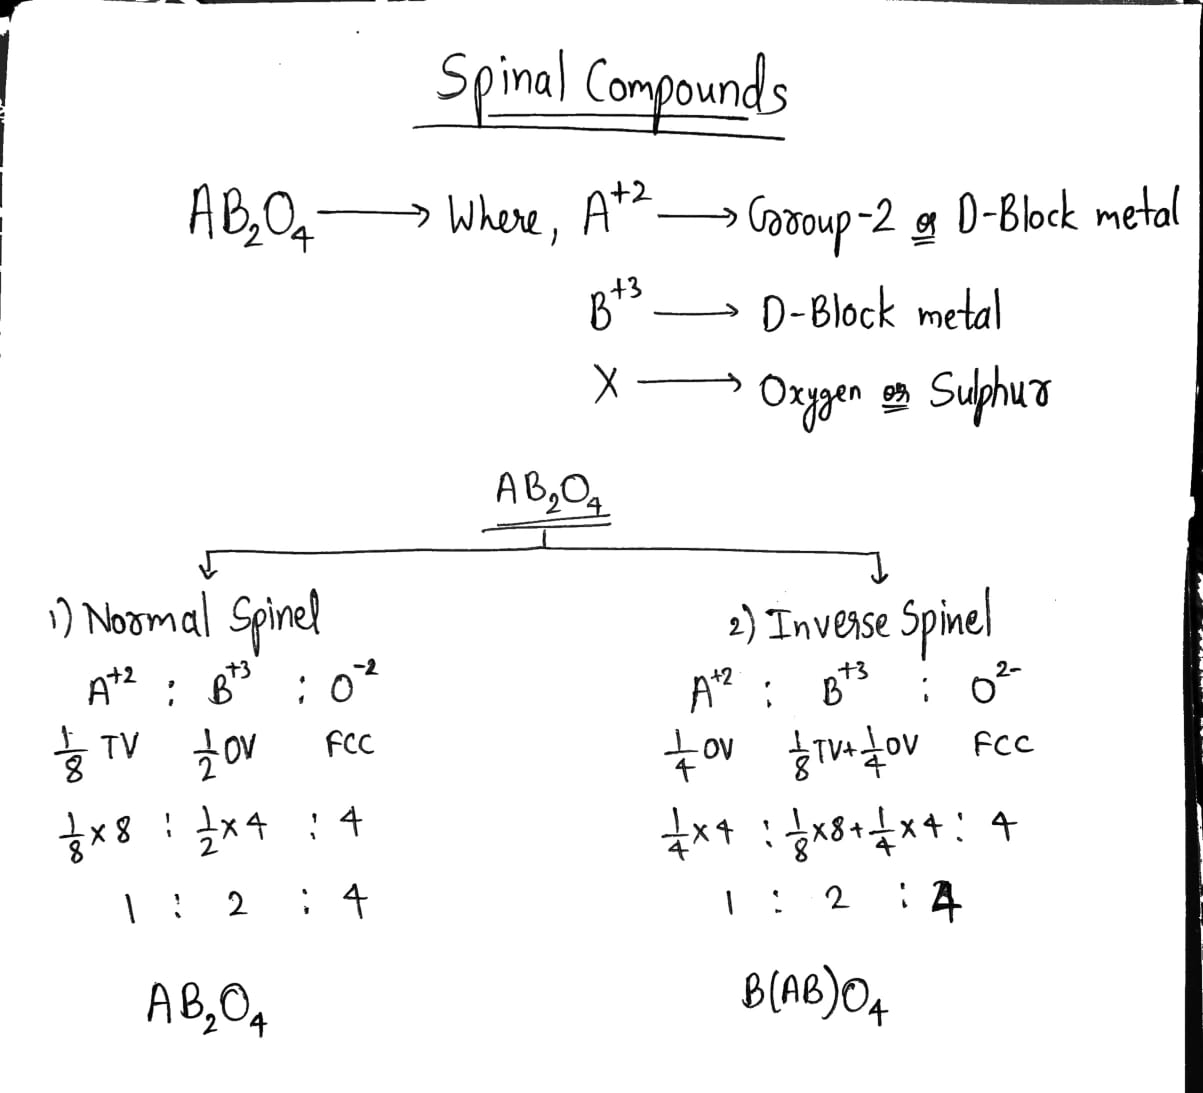 Spinal Compounds
AB₂O₄ → Where, A⁺² → Group-2 or D-Block metal
B⁺³ → D-Block metal
X → Oxygen or Sulphur
AB₂O₄
1) Normal Spinel
A⁺² : B⁺³ : O⁻²
1/8 TV 1/2 OV FCC
1/8 x 8 : 1/2 x 4 : 4
1 : 2 : 4
AB₂O₄
2) Inverse Spinel
A⁺² : B⁺³ : O²⁻
1/4 OV 1/8 TV + 1/4 OV FCC
1/4 x 4 : 1/8 x 8 + 1/4 x 4 : 4
1 : 2 : 4
B(AB)O₄